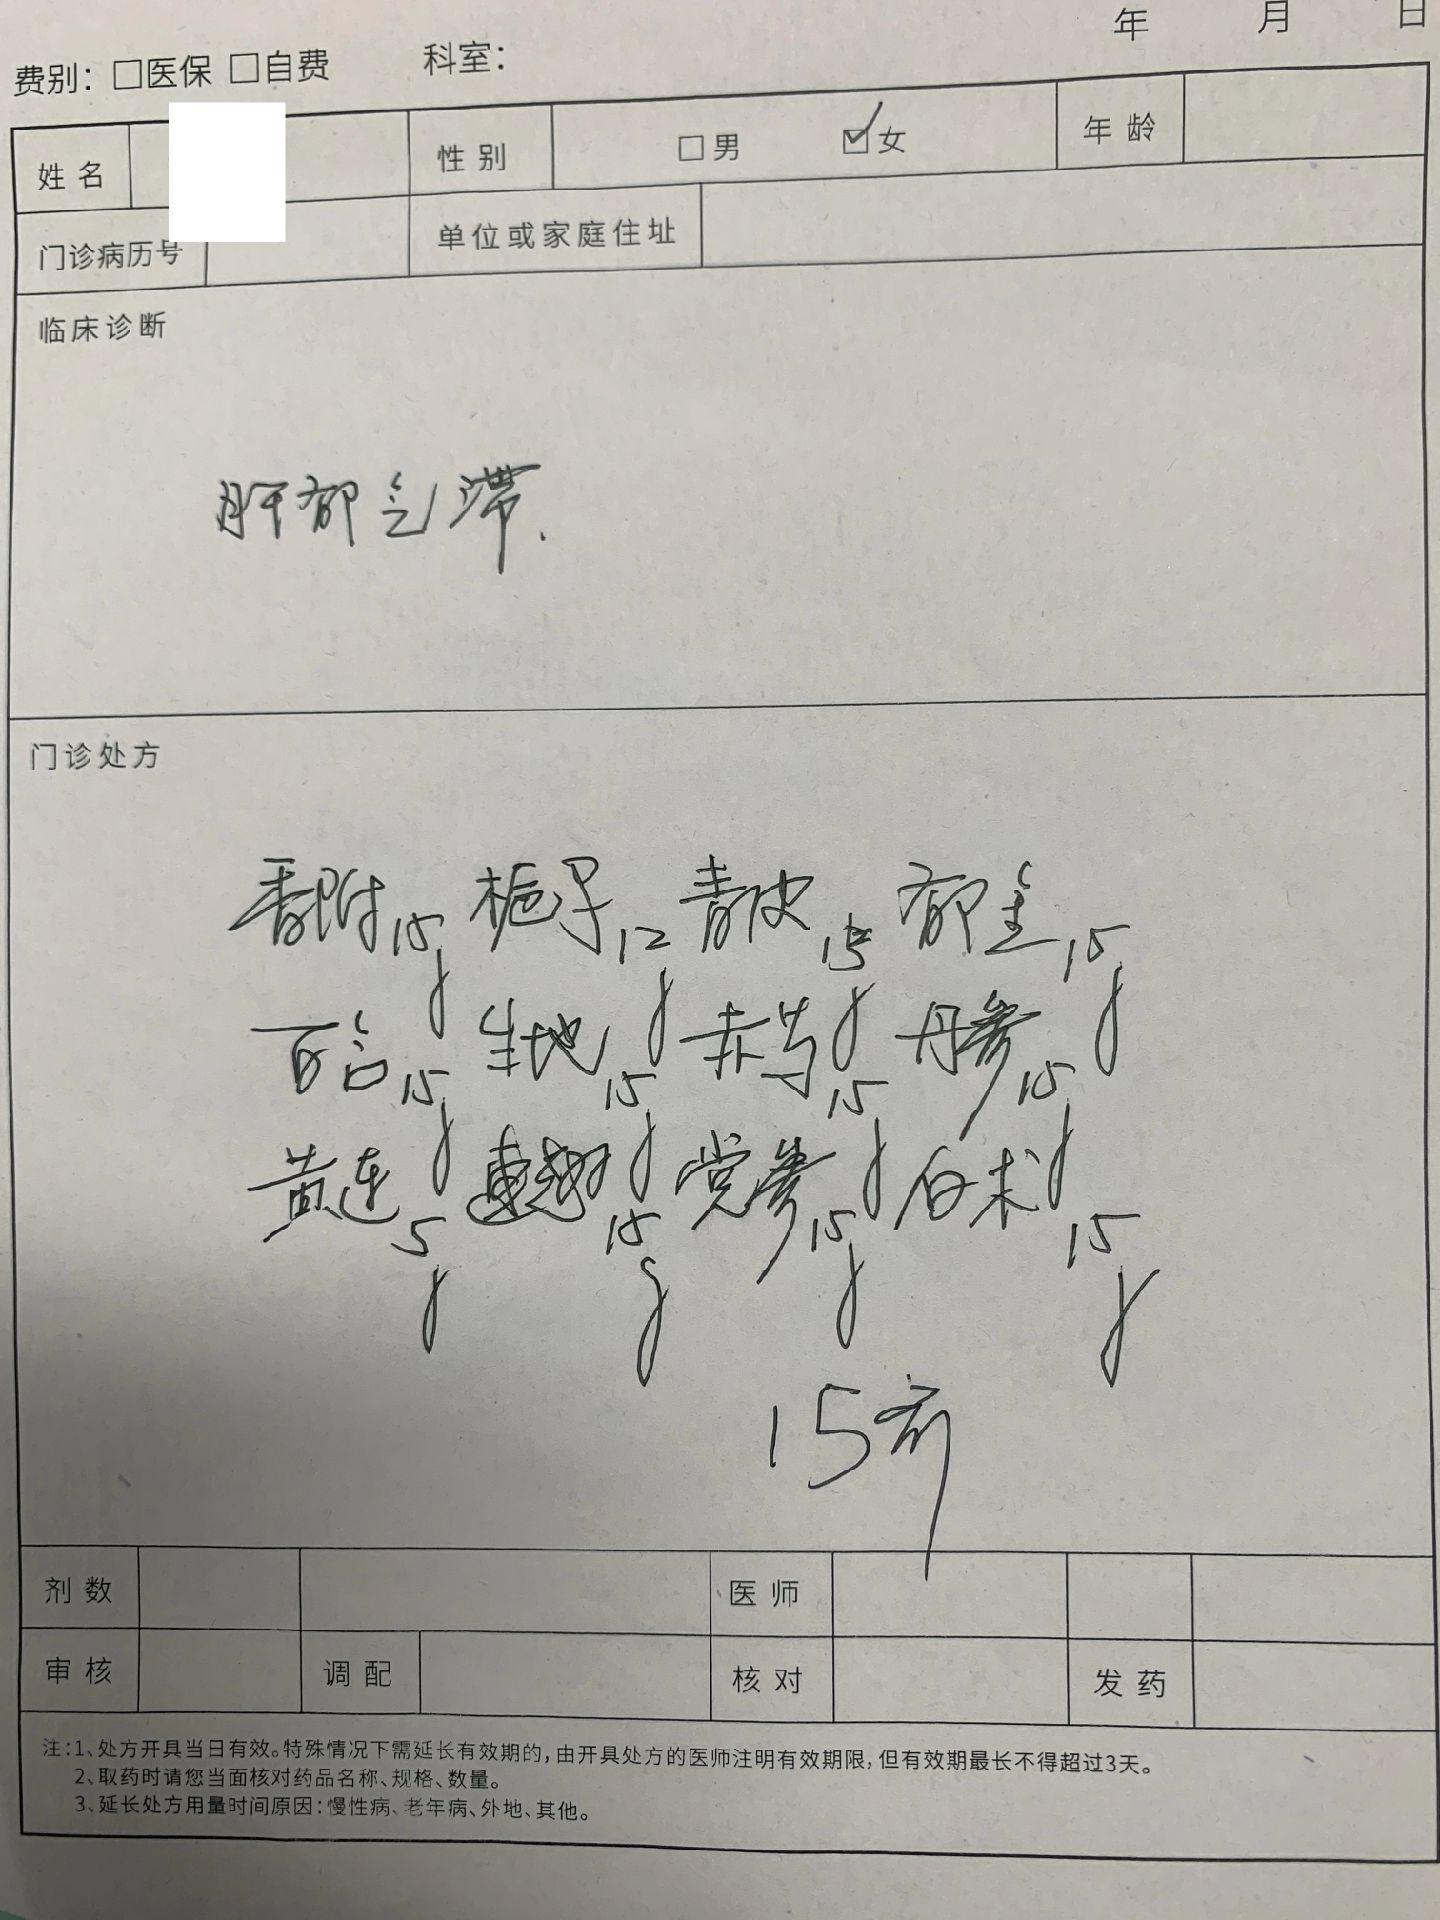 年 月 日
费别：□医保 □自费 科室：
姓名 性别 □男 ☑女 年龄
门诊病历号 单位或家庭住址
临床诊断
肝郁气滞.
门诊处方
香附15g 栀子12g 青皮15g 郁金15g
百合15g 生地15g 赤芍15g 丹参15g
黄连5g 15g 党参15g 白术15g
15剂
剂数 医师
审核 调配 核对 发药
注：1、处方开具当日有效。特殊情况下需延长有效期的，由开具处方的医师注明有效期限，但有效期最长不得超过3天。
2、取药时请您当面核对药品名称、规格、数量。
3、延长处方用量时间原因：慢性病、老年病、外地、其他。